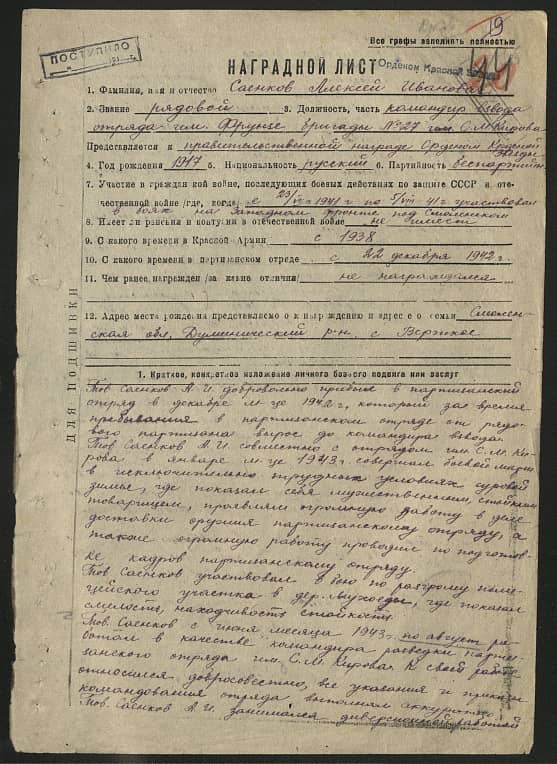 19
Все графы заполнять полностью
ПОСТУПИЛО
НАГРАДНОЙ ЛИСТ
Орденом Красной
1. Фамилия, имя и отчество Саенков Алексей Иванович
2. Звание рядовой 3. Должность, часть командир взвода
отряда им. Фрунзе бригады №27 им. С.М. Кирова
Представляется к правительственной награде Орденом Красной
Звезды
4. Год рождения 1917 5. Национальность русский 6. Партийность беспартийн
7. Участие в гражданской войне, последующих боевых действиях по защите СССР и оте-
чественной войне /где, когда/ с 23/ 1941 г по 5/VII 41 г участвовал
в боях на Западном фронте под Смоленском
8. Имеет ли ранения и контузии в отечественной войне не имеет
9. С какого времени в Красной Армии с 1938
10. С какого времени в партизанском отряде с 22 декабря 1942 г.
11. Чем ранее награжден /за какие отличия/ не награждался
12. Адрес места рождения представляемого к награждению и адрес его семьи Смолен-
ская обл. Думиничский р-н, с Верткое
ДЛЯ ПОДШИВКИ
1. Краткое, конкретное изложение личного боевого подвига или заслуг
Тов Саенков А. И добровольно прибыл в партизанский
отряд в декабре м-це 1942 г, который за время
пребывания в партизанском отряде от рядо-
вого партизана вырос до командира взвода.
Тов Саенков А. И совместно с отрядом им. С. М. Ки-
рова в январе м-це 1943 г. совершал боевой марш
в исключительно трудных условиях суровой
зимы, где показал себя мужественным, стойким
товарищем, проявлял огромную работу в деле
доставки оружия партизанскому отряду, а
также огромную работу проводил по подготов-
ке кадров партизанскому отряду.
Тов Саенков участвовал в бою по разгрому поли-
цейского участка в дер. , где показал
смелость, находчивость стойкость.
Тов. Саенков с июня месяца 1943 г. по август ра-
ботал в качестве командира разведки парти-
занского отряда им. С. М. Кирова. К своей работе
относился добросовестно, все указания и приказы
командования отряда выполнял аккуратно.
Тов. Саенков А. И занимался диверсионной работой